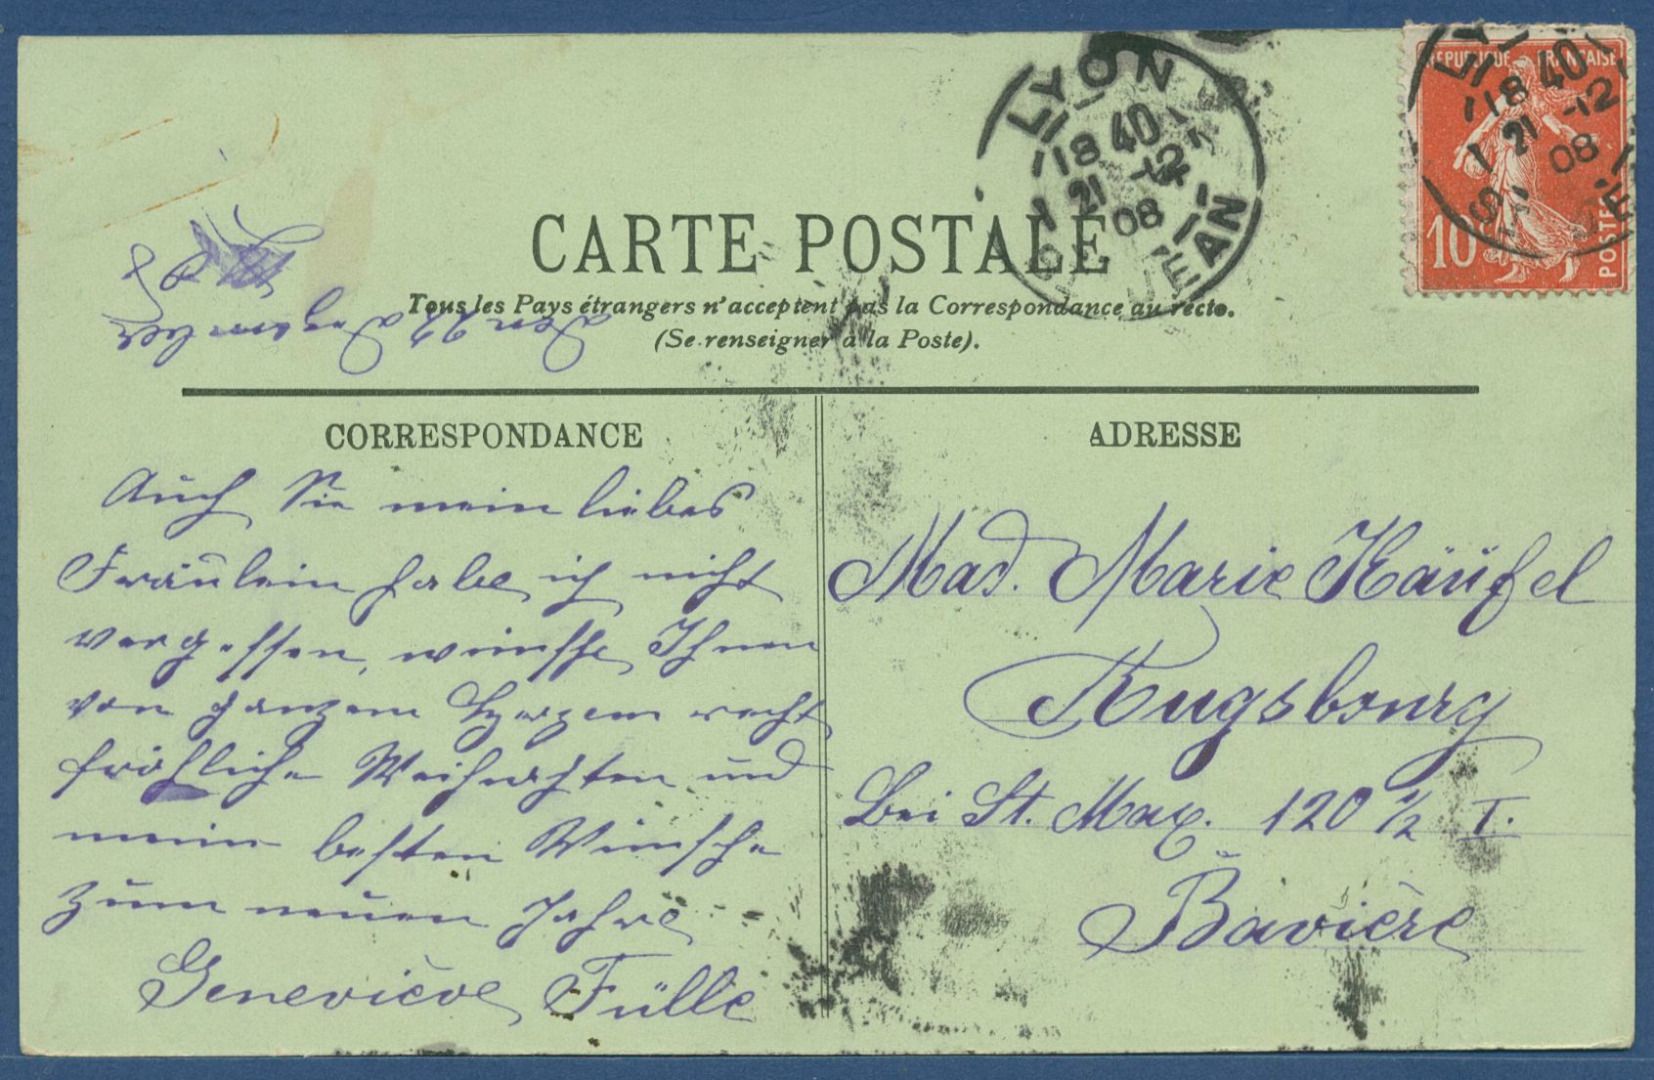 LYON
18 40
21 -12
08
ST JEAN
REPUBLIQUE FRANÇAISE
LYON
18 40
21 -12
08
10
POSTES
CARTE POSTALE
Tous les Pays étrangers n'acceptent pas la Correspondance au recto.
(Se renseigner à la Poste).
den 22 Dezember
CORRESPONDANCE
Auch Sie mein liebes
Fräulein habe ich nicht
vergessen, wünsche Ihnen
von ganzem Herzem recht
fröhliche Weihnachten und
mein besten Wünsche
zum neuen Jahre
Geneviève Fülle
ADRESSE
Mad. Marie Käüfel
Augsbourg
Bei St. Max. 120 1/2 I.
Bavière